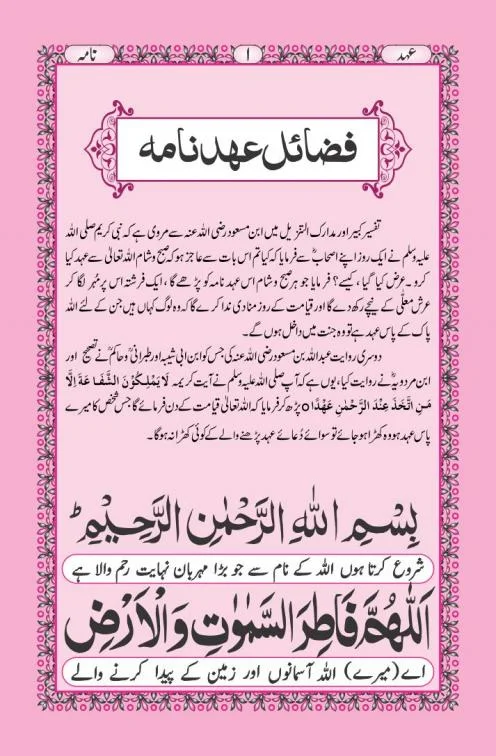 عہد ۱ نامہ
فضائل عہد نامہ
تفسیر کبیر اور مدارک التنزیل میں ابن مسعود رضی اللہ عنہ سے مروی ہے کہ نبی کریم صلی اللہ
علیہ وسلم نے ایک روز اپنے اصحابؓ سے فرمایا کہ کیا تم اس بات سے عاجز ہو کہ صبح و شام اللہ تعالیٰ سے عہد کیا
کرو۔ عرض کیا گیا، کیسے؟ فرمایا جو ہر صبح و شام اس عہد نامہ کو پڑھے گا، ایک فرشتہ اس پر مُہر لگا کر
عرش معلّٰی کے نیچے رکھ دے گا اور قیامت کے روز منادی ندا کرے گا کہ وہ لوگ کہاں ہیں جن کے لئے اللہ
پاک کے پاس عہد ہے تو وہ جنت میں داخل ہوں گے۔
دوسری روایت عبداللہ بن مسعود رضی اللہ عنہ کی جس کو ابن ابی شیبہ اور طبرانیؒ و حاکمؒ نے تصحیح اور
ابن مردویہؒ نے روایت کیا، یوں ہے کہ آپ صلی اللہ علیہ وسلم نے آیت کریمہ لَا یَمْلِکُوْنَ الشَّفَاعَةَ اِلَّا
مَنِ اتَّخَذَ عِنْدَ الرَّحْمٰنِ عَهْدًا ○ پڑھ کر فرمایا کہ اللہ تعالیٰ قیامت کے دن فرمائے گا جس شخص کا میرے
پاس عہد ہو وہ کھڑا ہو جائے تو سوائے دُعائے عہد پڑھنے والے کے کوئی کھڑا نہ ہو گا۔
بِسْمِ اللّٰهِ الرَّحْمٰنِ الرَّحِیْمِ ط
شروع کرتا ہوں اللہ کے نام سے جو بڑا مہربان نہایت رحم والا ہے
اَللّٰهُمَّ فَاطِرَ السَّمٰوٰتِ وَالْاَرْضِ
اے (میرے) اللہ آسمانوں اور زمین کے پیدا کرنے والے